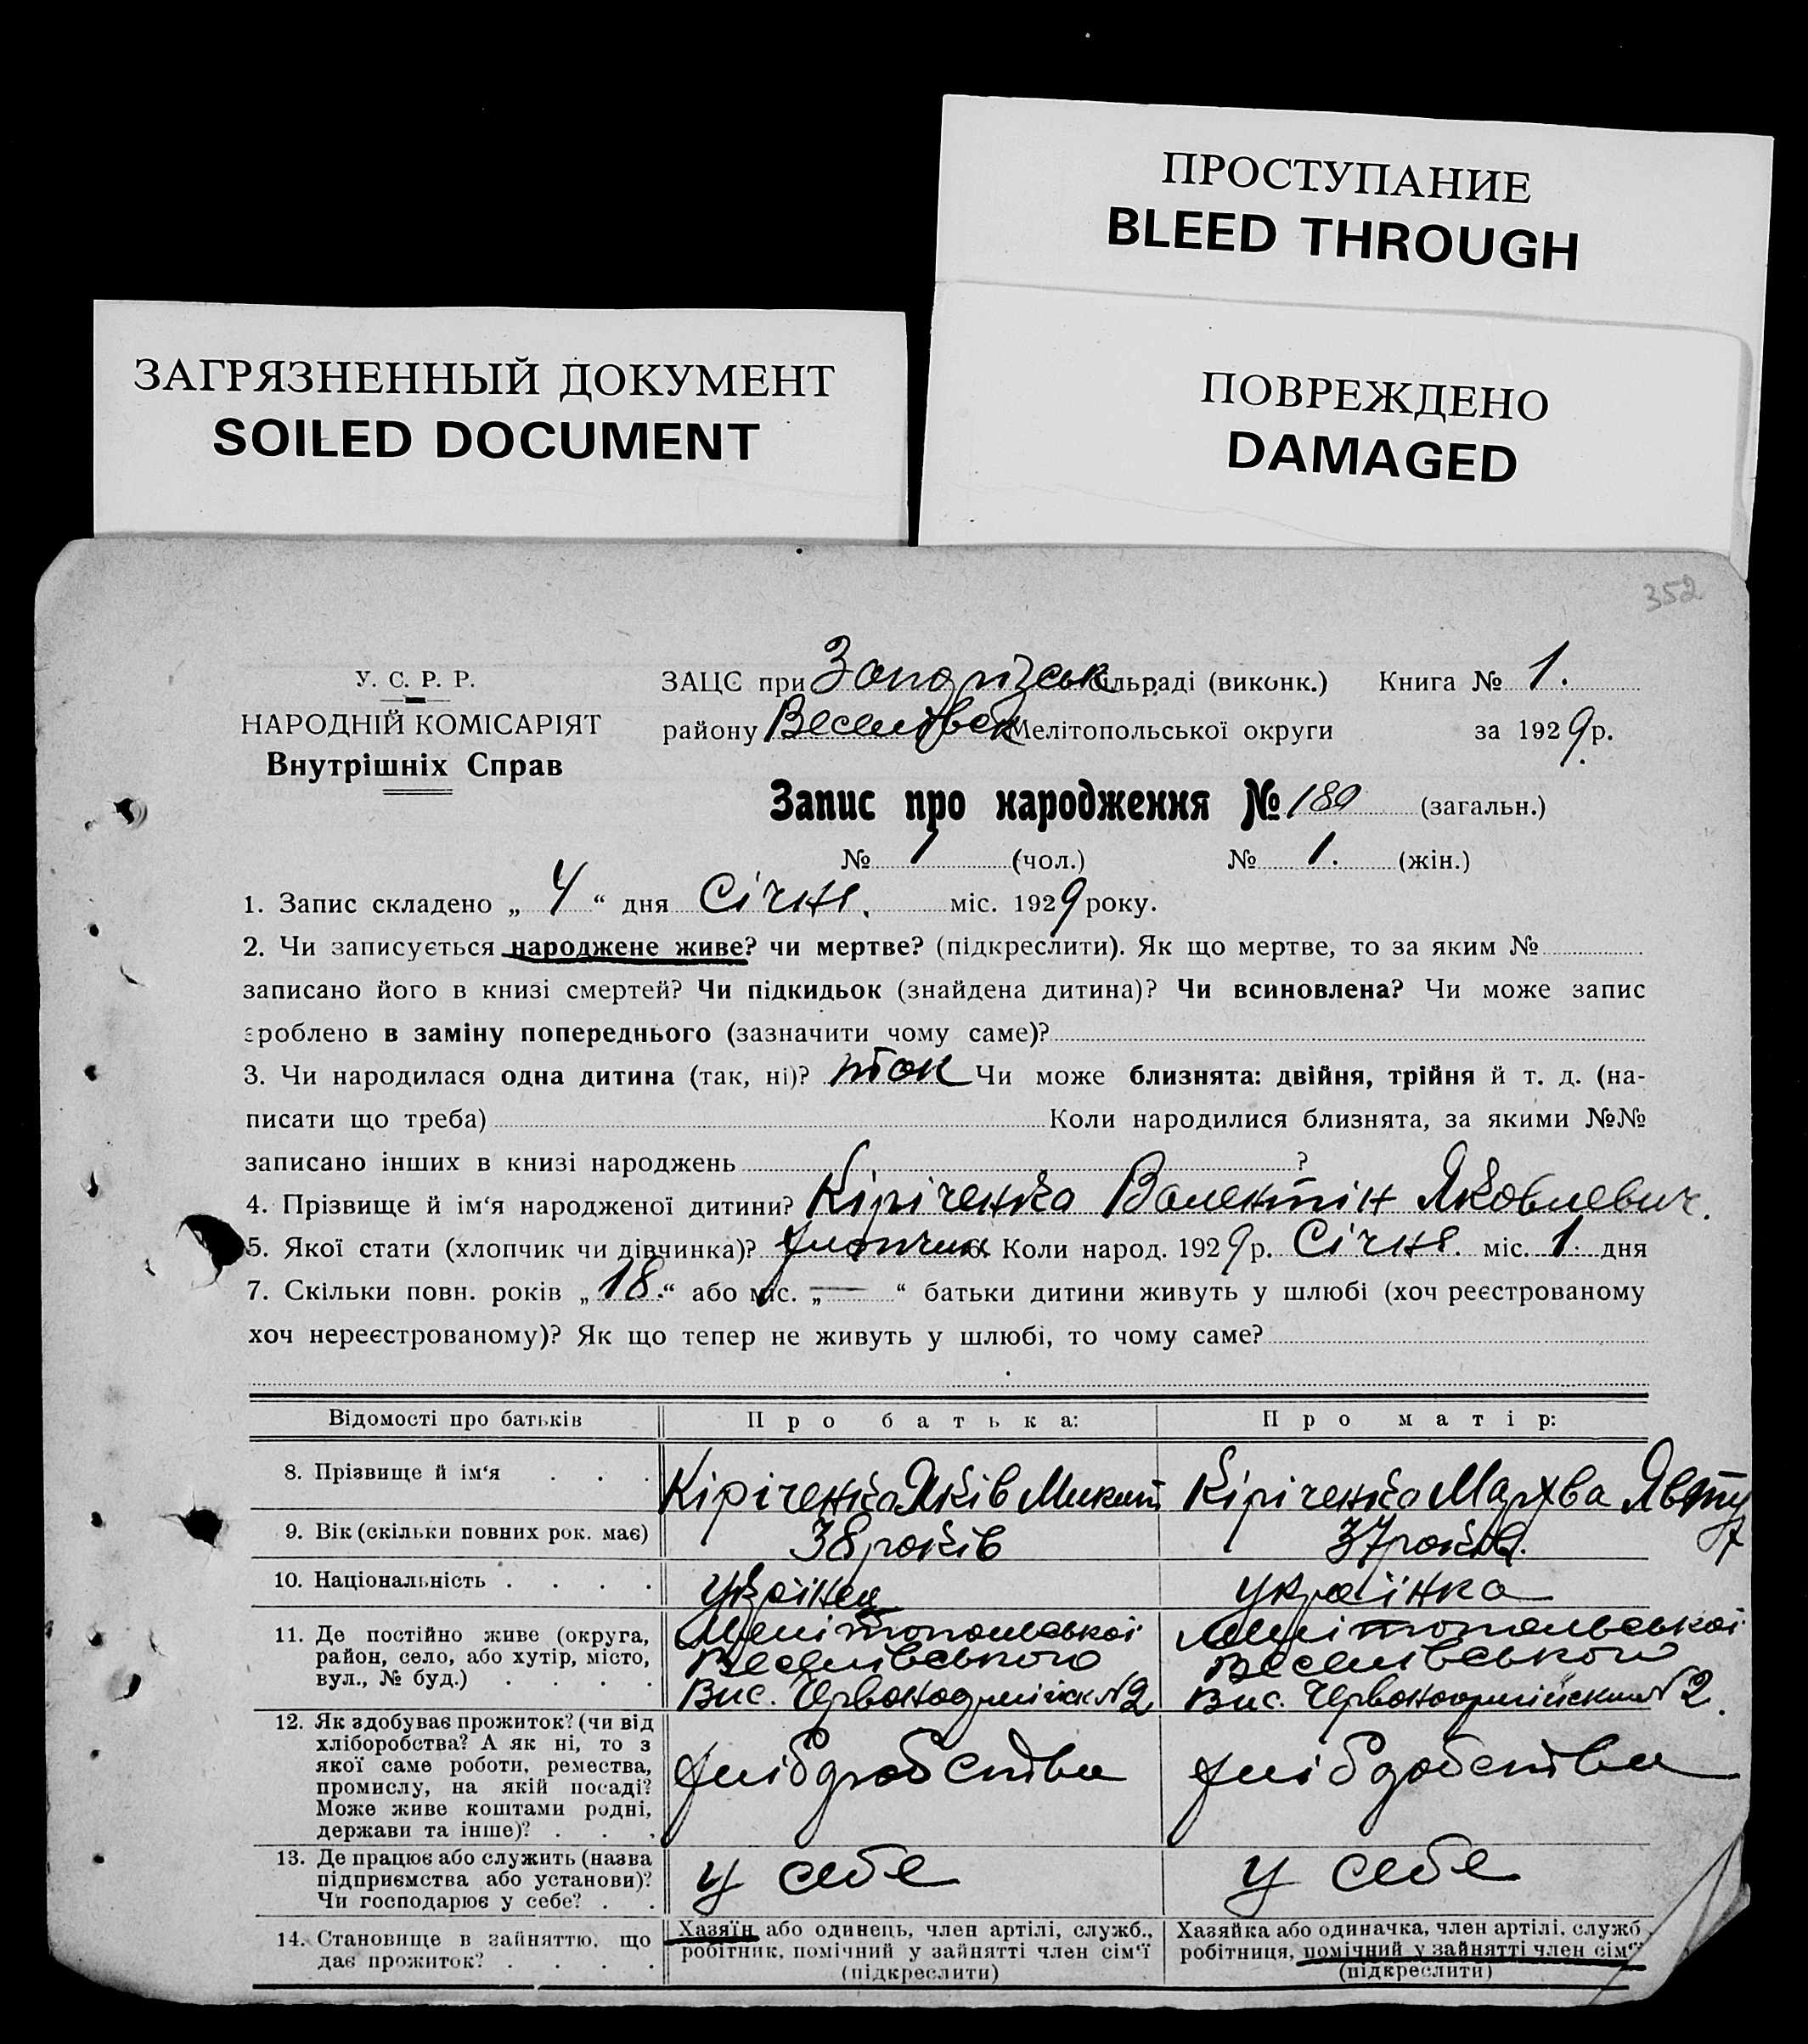 ПРОСТУПАНИЕ
BLEED THROUGH
ЗАГРЯЗНЕННЫЙ ДОКУМЕНТ
SOILED DOCUMENT
ПОВРЕЖДЕНО
DAMAGED
352
У. С. Р. Р.
НАРОДНІЙ КОМІСАРІЯТ
Внутрішніх Справ
ЗАЦС при Запорізськ сільраді (виконк.) Книга № 1.
району Веселівськ Мелітопольської округи за 1929 р.
Запис про народження № 180 (загальн.)
№ 1 (чол.) № 1. (жін.)
1. Запис складено „ 4 “ дня Січня. міс. 1929 року.
2. Чи записується народжене живе? чи мертве? (підкреслити). Як що мертве, то за яким №
записано його в книзі смертей? Чи підкидьок (знайдена дитина)? Чи всиновлена? Чи може запис
зроблено в заміну попереднього (зазначити чому саме)?
3. Чи народилася одна дитина (так, ні)? так Чи може близнята: двійня, трійня й т. д. (на-
писати що треба) Коли народилися близнята, за якими №№
записано інших в книзі народжень ?
4. Прізвище й ім‘я народженої дитини? Кіріченко Валентін Яковлевич.
5. Якої стати (хлопчик чи дівчинка)? хлопчик 6. Коли народ. 1929 р. Січня. міс. 1. дня
7. Скільки повн. років „ 18. “ або міс. „ — “ батьки дитини живуть у шлюбі (хоч реєстрованому
хоч нереєстрованому)? Як що тепер не живуть у шлюбі, то чому саме?
Відомості про батьків Про батька: Про матір:
8. Прізвище й ім‘я . . . Кіріченко Яків Микит Кіріченко Мархва Явтух
9. Вік (скільки повних рок. має) 38 років 37 років.
10. Національність . . . . українец українка
11. Де постійно живе (округа,
район, село, або хутір, місто,
вул., № буд.) . . . .
Мелітопольської
Веселівського
Вис. Червоноармійськ №2
Мелітопольської
Веселівського
Вис. Червоноармійський №2.
12. Як здобуває прожиток? (чи від
хліборобства? А як ні, то з
якої саме роботи, ремества,
промислу, на якій посаді?
Може живе коштами родні,
держави та інше)? . . .
хліборобства
хліборобства
13. Де працює або служить (назва
підприємства або установи)?
Чи господарює у себе? . .
у себе
у себе
14. Становище в зайняттю, що
дає прожиток? . . . .
Хазяїн або одинець, член артілі, служб.,
робітник, помічний у зайнятті член сім‘ї
(підкреслити)
Хазяйка або одиначка, член артілі, служб.
робітниця, помічний у зайнятті член сім‘ї
(підкреслити)